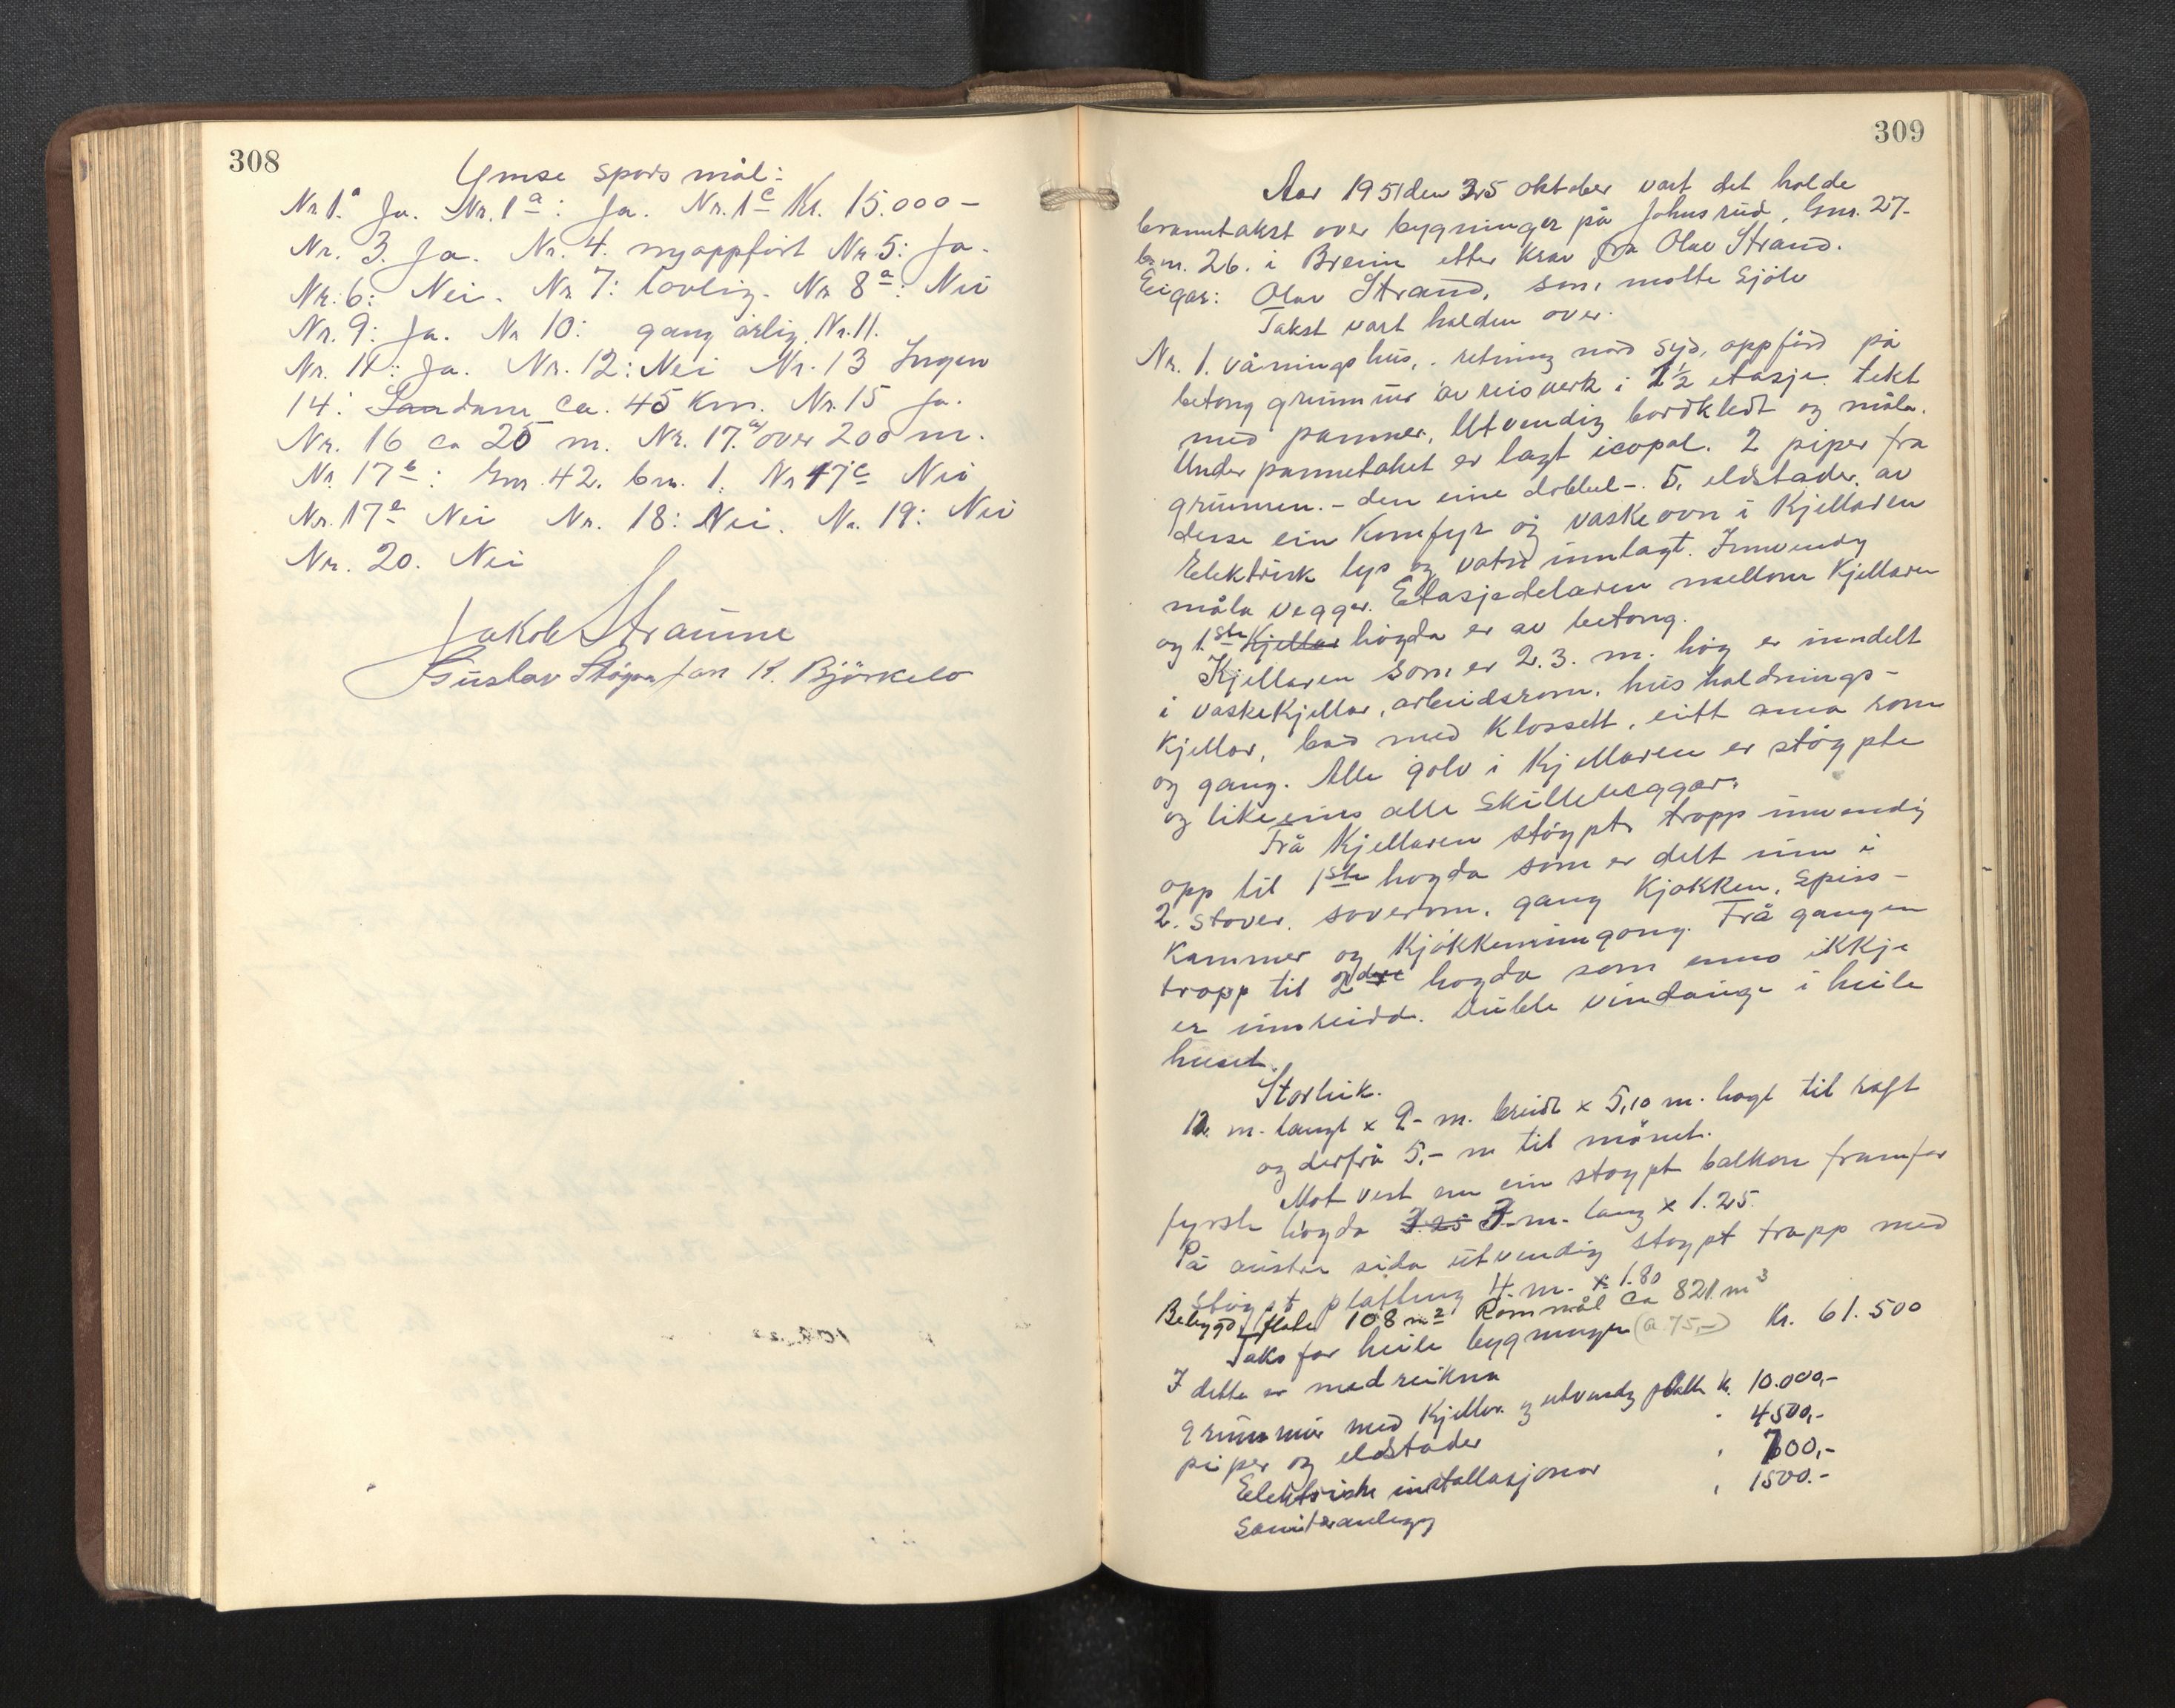 308
Ymse spørsmål:
Nr 1.a Ja. Nr. 1a: Ja. Nr. 1c Kr. 15.000-
Nr. 3. Ja. Nr. 4. nyoppført Nr. 5: Ja.
Nr. 6: Nei. Nr 7: lovlig. Nr 8a: Nei
Nr. 9: Ja. Nr 10: gang årlig. Nr. 11.
Nr. 11: Ja. Nr. 12: Nei Nr. 13 Ingen
14: Sandane ca. 45 Km. Nr. 15 Ja.
Nr. 16 ca 25 m. Nr. 17.a) over 200 m.
Nr. 17b: Gnr. 42. bnr. 1. Nr 17c Nei
Nr. 17e Nei Nr. 18: Nei. Nr. 19: Nei
Nr. 20. Nei
Jakob Straume
Gustav Støyva Jan K. Björkelo
309
Aar 1951 den 25 oktober vart det halde
branntakst over bygninger på Johusrud, Gnr. 27-
bnr. 26. i Breim etter Krav fra Olav Strand.
Eigar: Olav Strand, som møtte sjölv
Takst vart halden over.
Nr. 1. våningshus, retning nord syd, oppförd på
betong grunnmur av reisverk i 1½ etasje. tekt
med panner. Utvendig bordkledt og måla.
Under pannetaket er lagt icopal. 2 piper fra
grunnen. - den eine dobbel-. 5. eldstader. av
desse ein Komfyr og vaskeovn i Kjellaren
Elektrisk lys og vatn innlagt. Innvendig
måla vegger. Etasjedelaren mellom Kjellaren
og 1.ste Kjellar högda er av betong.
Kjellaren som er 2.3. m. høg er inndelt
i vaskekjellar, arbeidsrom, hus haldnings-
Kjellar, bad med Klossett, eitt anna rom
og gang. Alle golv i Kjellaren er støypte
og likeeins alle skilleveggar.
Frå Kjellaren støypt tropp innvendig
opp til 1ste hogda som er delt inn i
2. stover. soverom. gang Kjøkken, Speis-
Kammer og Kjökkeninngang. Frå gangen
tropp til 2dre hogda som enno ikkje
er innreidd. Duble vindauge i heile
huset.
Storleik.
12. m. langt x 9- m. breidt x 5,10 m. høgt til raft
og derfrå 5,- m til mønet.
Mot vest er ein støypt balkon framfor
fyrste høgda 3.25 7- m. lang x 1.25.
På austre sida utvendig støypt trapp med
støypt plattung 4 m. x 1.80
Bebygd flate 108 m2 Rommål ca 821 m3
Taks for heile bygningen (a 75,-) Kr. 61.500
I dette er medreikna
grunnmur med Kjellar og utvendig platt Kr. 10.000,-
piper og eldstader " 4500,-
Elektriske installasjonar " 700,-
Sanitæranlegg " 1500.-